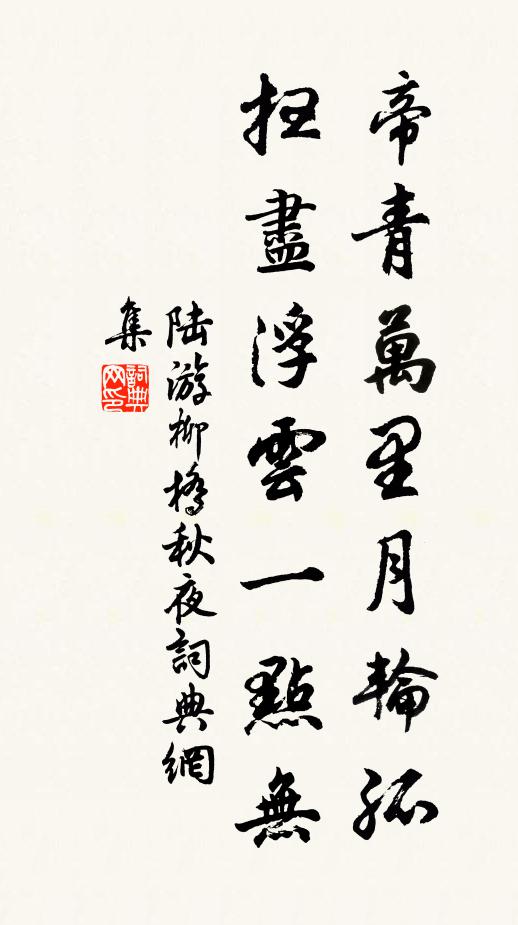 帝青萬里月輪孤
掃盡浮雲一點無
陸游柳橋秋夜詞典網
集
詞典网印